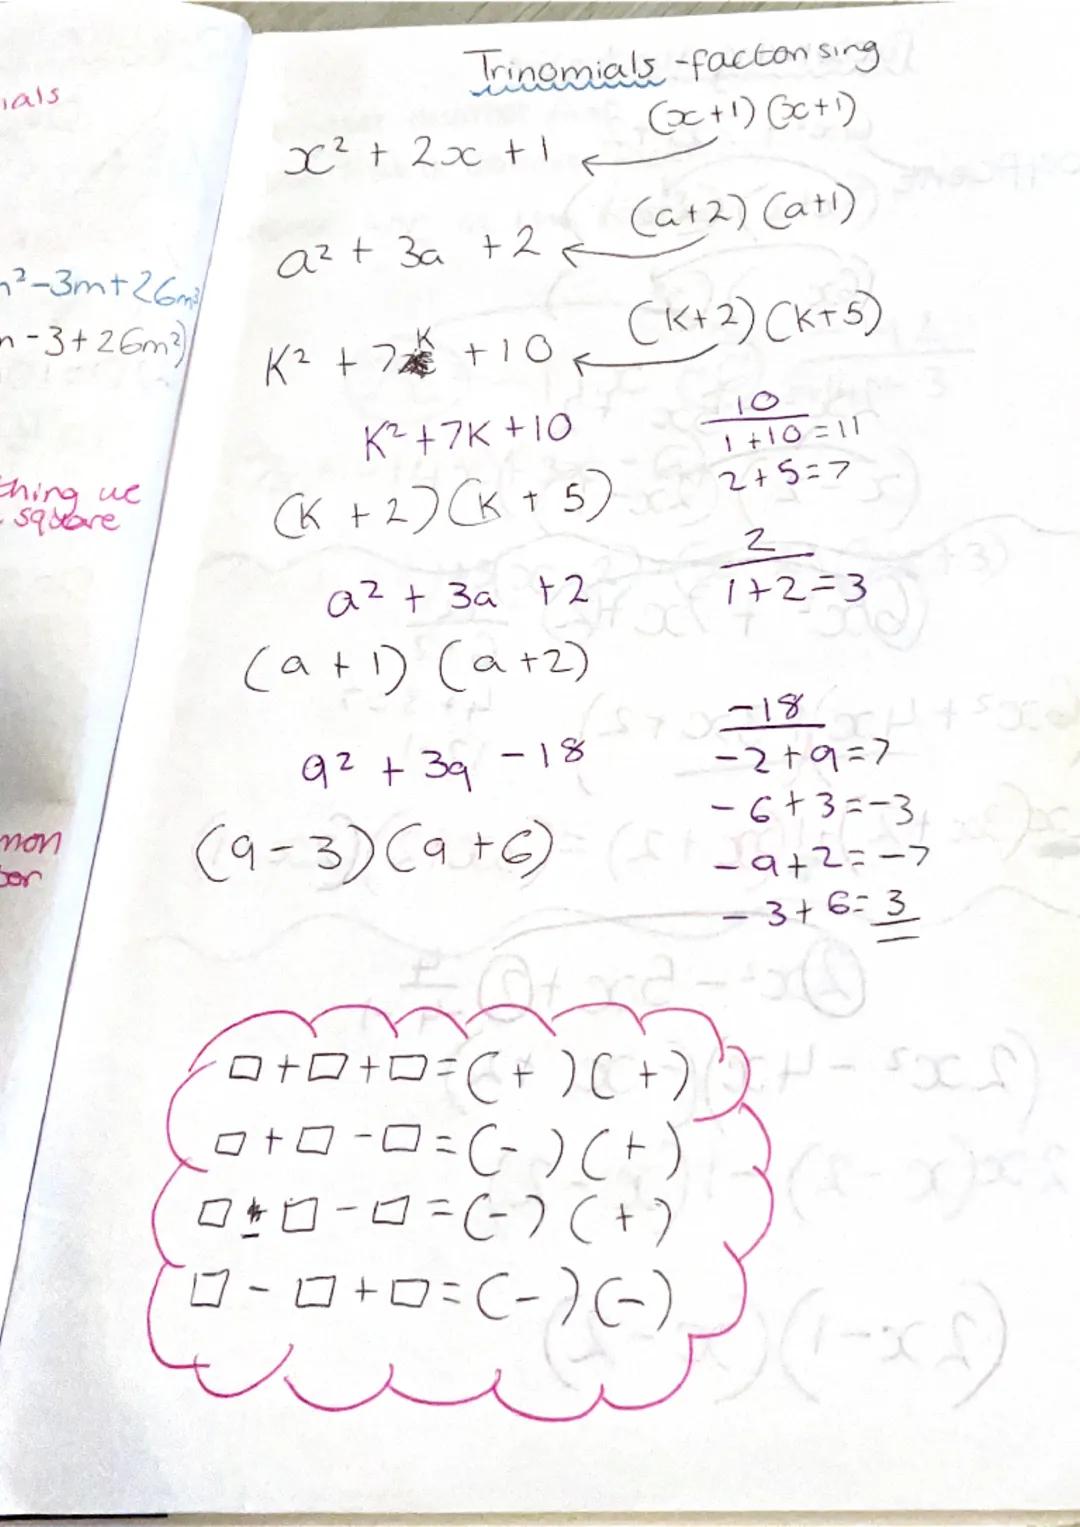 Trinomials - factorising
(x+1)(x+1)
x² + 2x + 1
(a+2)(a+1)
a² + 3a + 2
(K+2)(K+5)
K² + 7K + 10
K² + 7K + 10
(K + 2)(K + 5)
10
1 + 10 = 11
2 + 5 = 7
a² + 3a + 2
(a + 1)(a + 2)
2
1 + 2 = 3
q² + 3q - 18
(q - 3)(q + 6)
-18
-2 + 9 = 7
-6 + 3 = -3
-9 + 2 = -7
-3 + 6 = 3
□ + □ + □ = ( + )( + )
□ + □ - □ = ( - )( + )
□ ± □ - □ = ( - )( + )
□ - □ + □ = ( - )( - )
ials
²-3m+26m³
-3+26m²)
thing we
square
mon